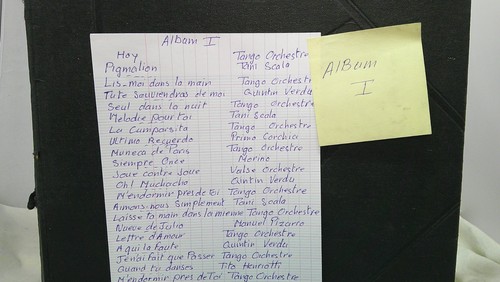 Album I
Hoy Tango Orchestre
Pigmalion Tani Scala
Lis-moi dans la main Tango Orchestre
Tu te souviendras de moi Quintin Verdu
Seul dans la nuit Tango Orchestre
Mélodie pour toi Tani Scala
La Cumparsita Tango Orchestre
Ultimo Recuerdo Primo Corchia
Muneca de Paris Tango Orchestre
Siempre Once Marino
Joue contre Joue Valse Orchestre
Oh! Muchacha Quintin Verdu
M'endormir près de toi Tango Orchestre
Aimons-nous Simplement Tani Scala
Laisse ta main dans la mienne Tango Orchestre
Nueve de Julio Manuel Pizarro
Lettre d'Amour Tango Orchestre
A qui la faute Quintin Verdu
Je n'ai fait que Passer Tango Orchestre
Quand tu danses Tito Henriotti
M'endormir près de Toi Tango Orchestre
AlBum
I